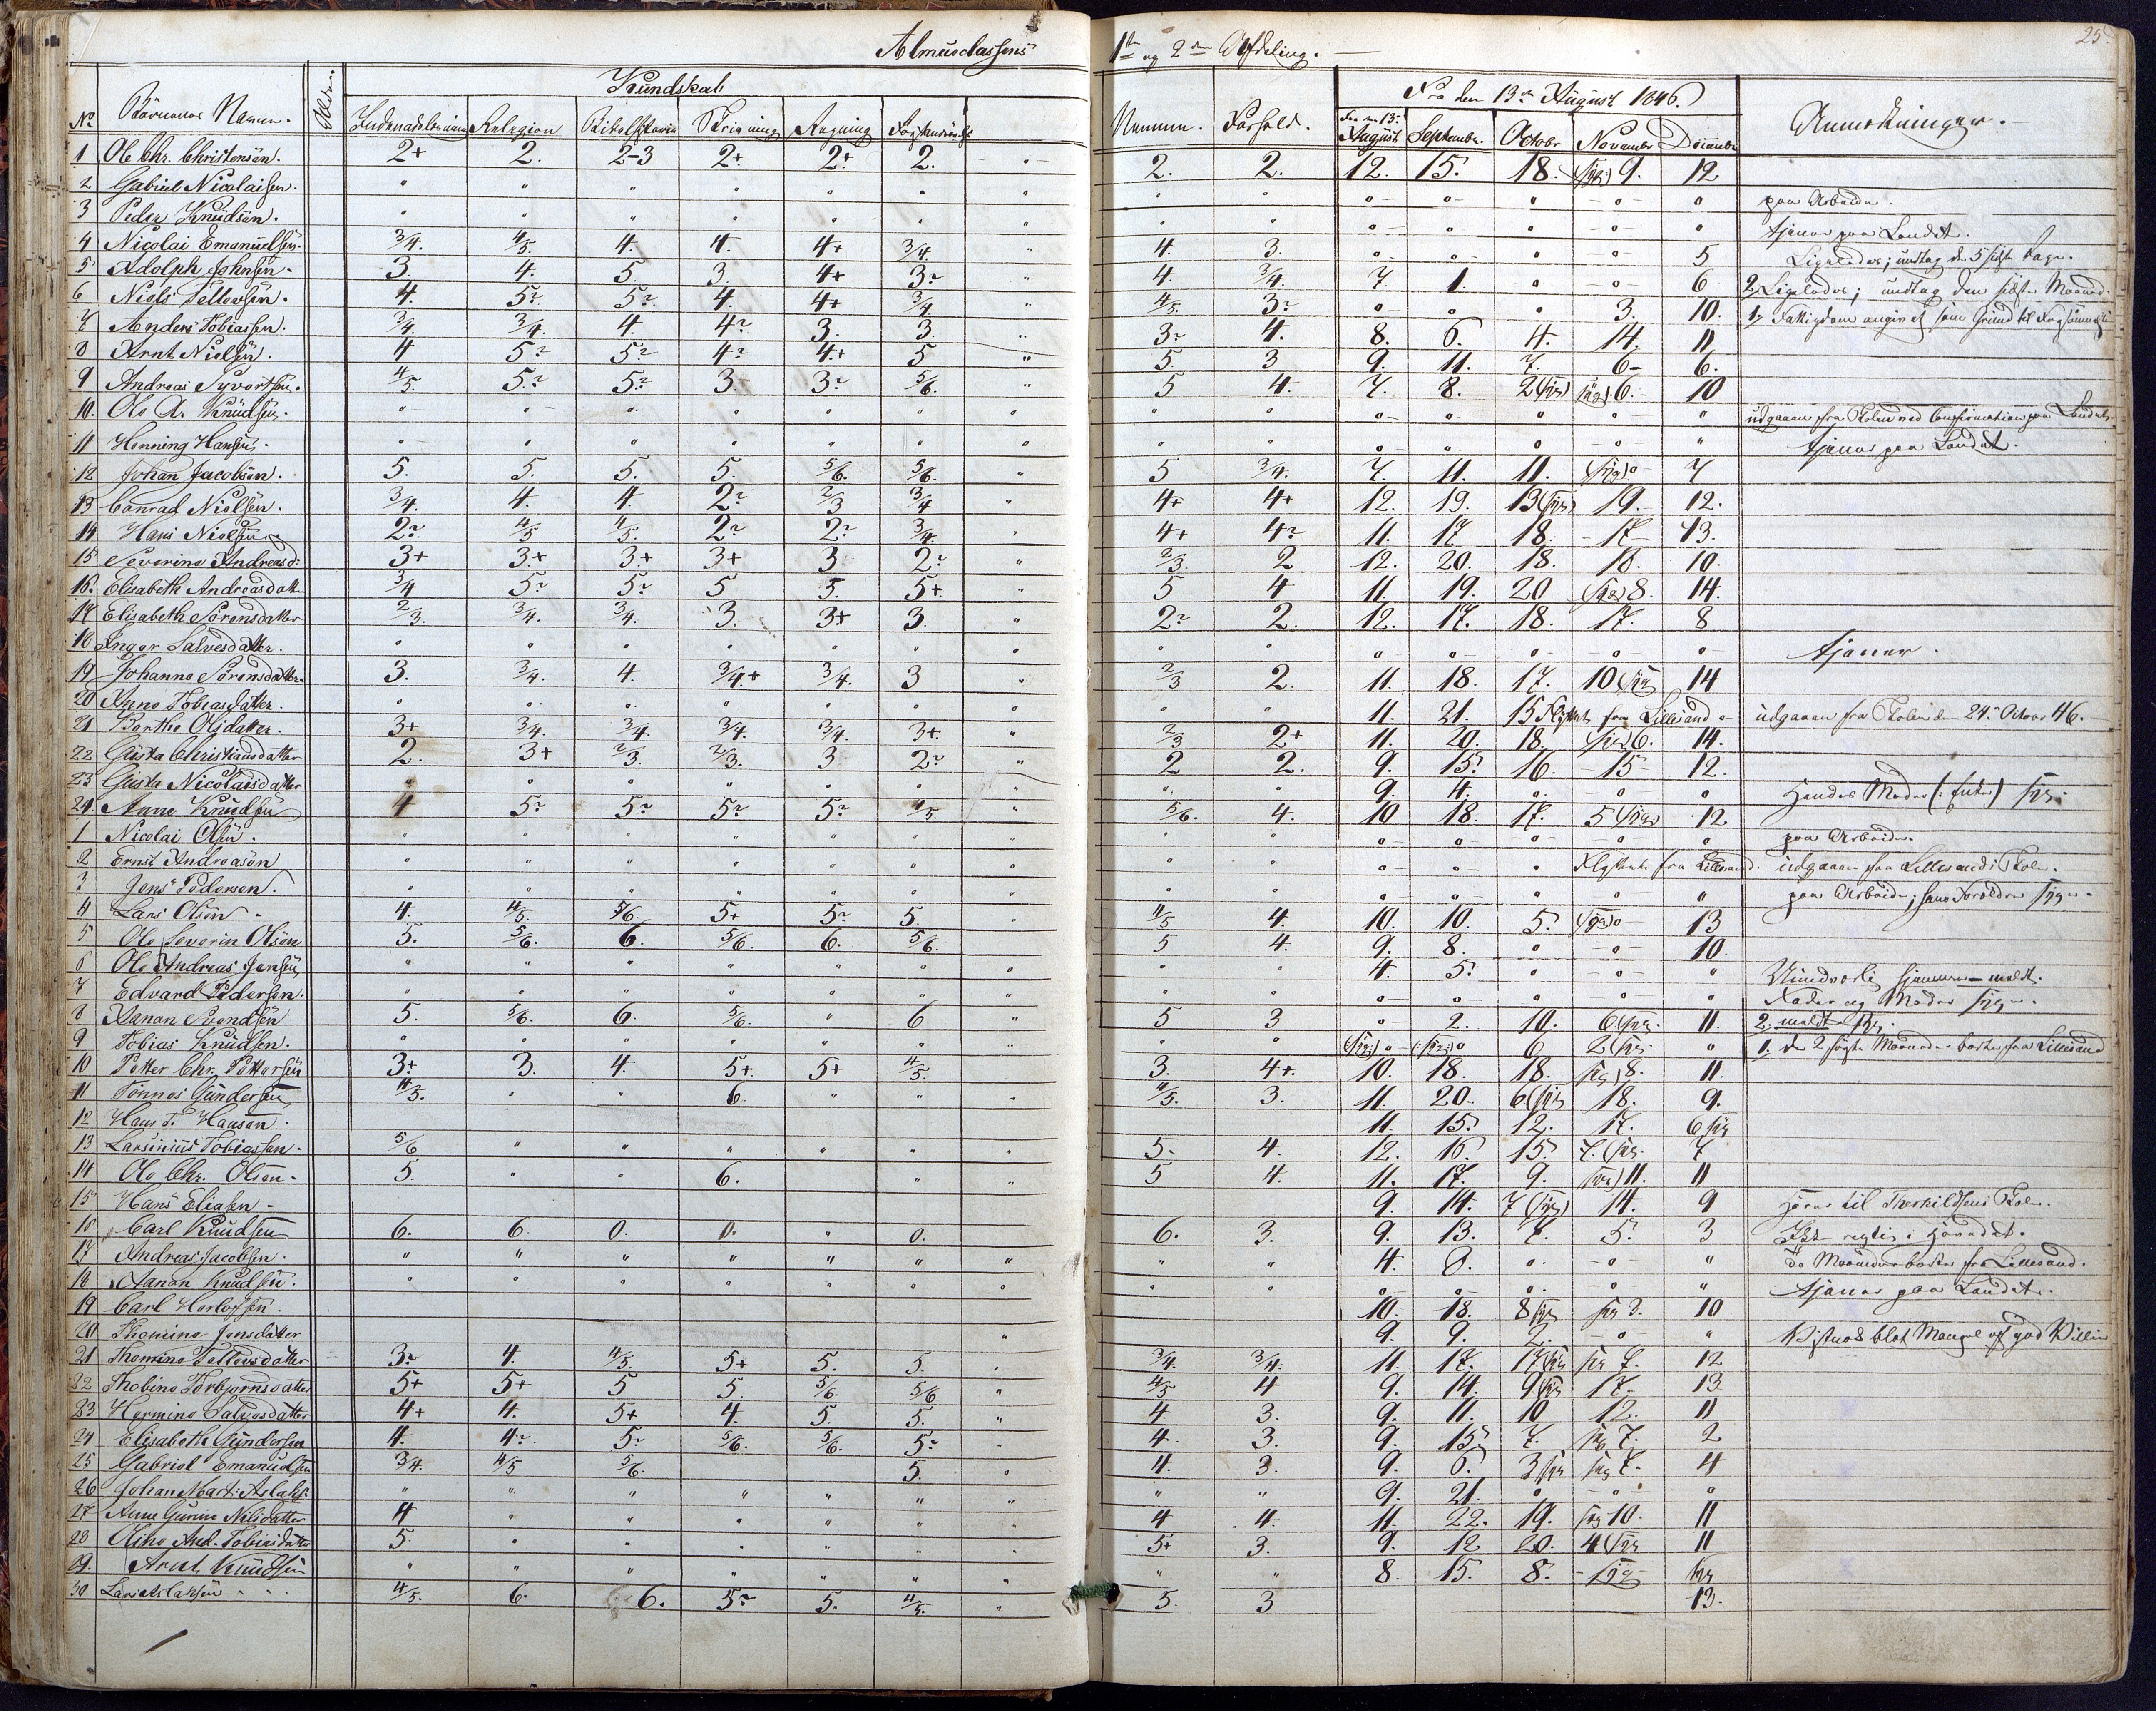 Almueclassens 1ste og 2den Afdeling.
25
No Børnenes Navne. Alder. Kundskab Nemme. Forhold. Fra den 13de August 1846. Anmærkninger.
Indenadslæsning Religion Bibelhistorie Skrivning Regning August September October November December
1 Ole Chr. Christensen. 2+ 2. 2-3 2+ 2+ 2. 2. 2. 12. 15. 18. (syg) 9. 12
2 Gabriel Nicolaisen. " " " " " " " " " " " " " paa Arbeide.
3 Peder Knudsen. " " " " " " " " " " " " " tjener paa Landet.
4 Nicolai Emanuelsen. 3/4. 4/5. 4. 4. 4+ 3/4. 4. 3. " " " " 5 Ligeledes; undtag de 5 sidste Dage.
5 Adolph Johnsen. 3. 4. 5. 3. 4+ 3? 4. 3/4. 7. 1. " " 6 2, Ligeledes; undtag den sidste Maaned.
6 Niels Tellevsen. 4. 5? 5? 4. 4+ 3/4 4/5. 3? " " " 3. 10. 1, Fattigdom angivet som Grund til
7 Anders Tobiassen. 3/4. 3/4. 4. 4? 3. 3. 3? 4. 8. 6. 4. 14. 11
8 Arnt Nielsen. 4 5? 5? 4? 4+ 5 5. 3 9. 11. 7. 6 6.
9 Andreas Syvertsen. 4/5. 5? 5? 3. 3? 5/6. 5 4. 7. 8. 2 (syg) (syg) 6. 10
10. Ole A. Knudsen. " " " " " " " " " " " " " udgaaen fra Skolen ved Confirmation paa Landet.
11 Henning Hansen. " " " " " " " " " " " " " tjener paa Landet.
12 Johan Jacobsen. 5. 5. 5. 5. 5/6. 5/6. 5 3/4. 7. 11. 11. (syg) 7
13 Conrad Nielsen. 3/4. 4. 4. 2? 2/3 3/4 4+ 4+ 12. 19. 13 (syg) 19. 12.
14 Hans Nielsen 2? 4/5 4/5. 2? 2? 3/4. 4+ 4? 11. 17 18. 17 13.
15 Severine Andreasd: 3+ 3+ 3+ 3+ 3 2? 2/3. 2 12. 20. 18. 18. 10.
16. Elisabeth Andreasdatt 3/4 5? 5? 5 5. 5+ 5 4 11. 19. 20 (syg) 8. 14.
17 Elisabeth Sørensdatter 2/3. 3/4. 3/4. 3. 3+ 3. 2? 2. 12. 17. 18. 17. 8
18 Inger Salvesdatter. " " " " " " " " " " " " " tjener.
19 Johanne Sørensdatter 3. 3/4. 4. 3/4+ 3/4. 3 2/3 2. 11. 18. 17. 10 (syg) 14
20 Anne Tobiasdatter. " " " " " " " " 11. 21. 15 Flyttet fra Lillesand udgaaen fra Skolen den 24. October 46.
21 Berthe Olsdatter. 3+ 3/4. 3/4. 3/4. 3/4. 3+ 2/3 2+ 11. 20. 18. (syg) 6. 14.
22 Gusta Christiansdatter 2. 3+ 2/3. 2/3. 3 2? 2 2. 9. 15. 16. 15 12.
23 Gusta Nicolaisdatter " " " " " " " 9. 4. " " " Hendes Moder (: Enke) syg.
24. Anne Knudsen 4 5? 5? 5? 5? 4/5. 5/6. 4. 10 18. 17. 5 (syg) 12
1 Nicolai Olsen. " " " " " " " " " " " " " paa Arbeide.
2 Ernst Andreasen " " " " " " " " " " " Flyttet fra Lillesand. udgaaen fra Lillesands Skole.
3 Jens Pedersen. " " " " " " " " " " " " " paa Arbeide; hans Forældre syge.
4 Lars Olsen 4. 4/5. 5/6. 5+ 5? 5 4/5 4. 10. 10. 5. (syg) 13
5 Ole Severin Olsen 5. 5/6. 6. 5/6. 6. 5/6. 5 4. 9. 8. " " 10.
6 Ole Andreas Jensen " " " " " " " " 4. 5. " " "
7 Edvard Pedersen. " " " " " " " " " " " " " Fader og Moder syge.
8 Aanon Svendsen 5. 5/6. 6. 5/6. " 6 5 3 " 2. 10. 6 (syg) 11. 2, meldt syg.
9 Tobias Knudsen. " " " " " " " " (syg) (syg) 6 2 (syg) " 1, de 2 første Maaneder borte fra Lillesand
10 Petter Chr. Pettersen 3+ 3. 4. 5+ 5+ 4/5. 3. 4+ 10. 18. 18. (syg) 8. 11.
11 Tønnes Gundersen 4/5. " " 6. " " 4/5. 3. 11. 20. 6 (syg) 18. 9.
12 Hans T. Hansen. 11. 15. 12. 17. 6 syg
13 Larsinius Tobiassen. 5/6 " " " " " 5. 4. 12. 16. 15. 7. (syg) 7
14 Ole Chr. Olsen. 5. " " 6. " " 5 4. 11. 17. 9. (syg) 11. 11
15 Hans Eliasen 9. 14. 7 (syg) 14. 9 hører til Therkildsens Skole.
16 Carl Knudsen 6. 6. 0. 0. " 0. 6. 3. 9. 13. 7. 5. 3
17 Andreas Jacobsen. " " " " " " " " 4. 8. " " " de Maaneder borte fra Lillesand.
18 Aanon Knudsen. " " " " " " " " " " " " " tjener paa Landet.
19 Carl Herlofsen. 10. 18. 8 syg syg 3. 10
20 Thomine Jensdatter 9. 9. 2. " " blot Mangel af god Villie
21 Thomine Tellevsdatter 3? 4. 4/5. 5+ 5. 5. 3/4. 3/4. 11. 17. 17 (syg) syg 7. 12
22 Thobine Torbjørnsdatter 5+ 5+ 5 5. 5/6. 5/6 4/5 4 9. 14. 9 (syg) 17. 13
23 Hermine Salvesdatter 4+ 4. 5+ 4. 5. 5. 4. 3. 9. 11. 10 12. 11
24 Elisabeth Gundersen 4. 4? 5? 5/6. 5/6. 5? 4. 3. 9. 15. 7. syg 7. 2
25 Gabriel Emanuelsen 3/4. 4/5 5/6. 5. 4. 3. 9. 6. 3 syg syg 7. 4
26 Johan Mart: Aslaks: " " " " " " " " 9. 21. " " "
27 Anne Gurine Nilsdatter 4 " " " " " 4 4. 11. 22. 19. syg 10. 11
28 Oline And. Tobiasdatter 5. " " " " " 5+ 3. 9. 12 20. 4 (syg) 11
29. Arnt Knudsen " " " " " " " " 8. 15. 8. syg syg
30 Lars Aslaksen 4/5. 6. 6. 5? 5. 4/5. 5. 3 13.